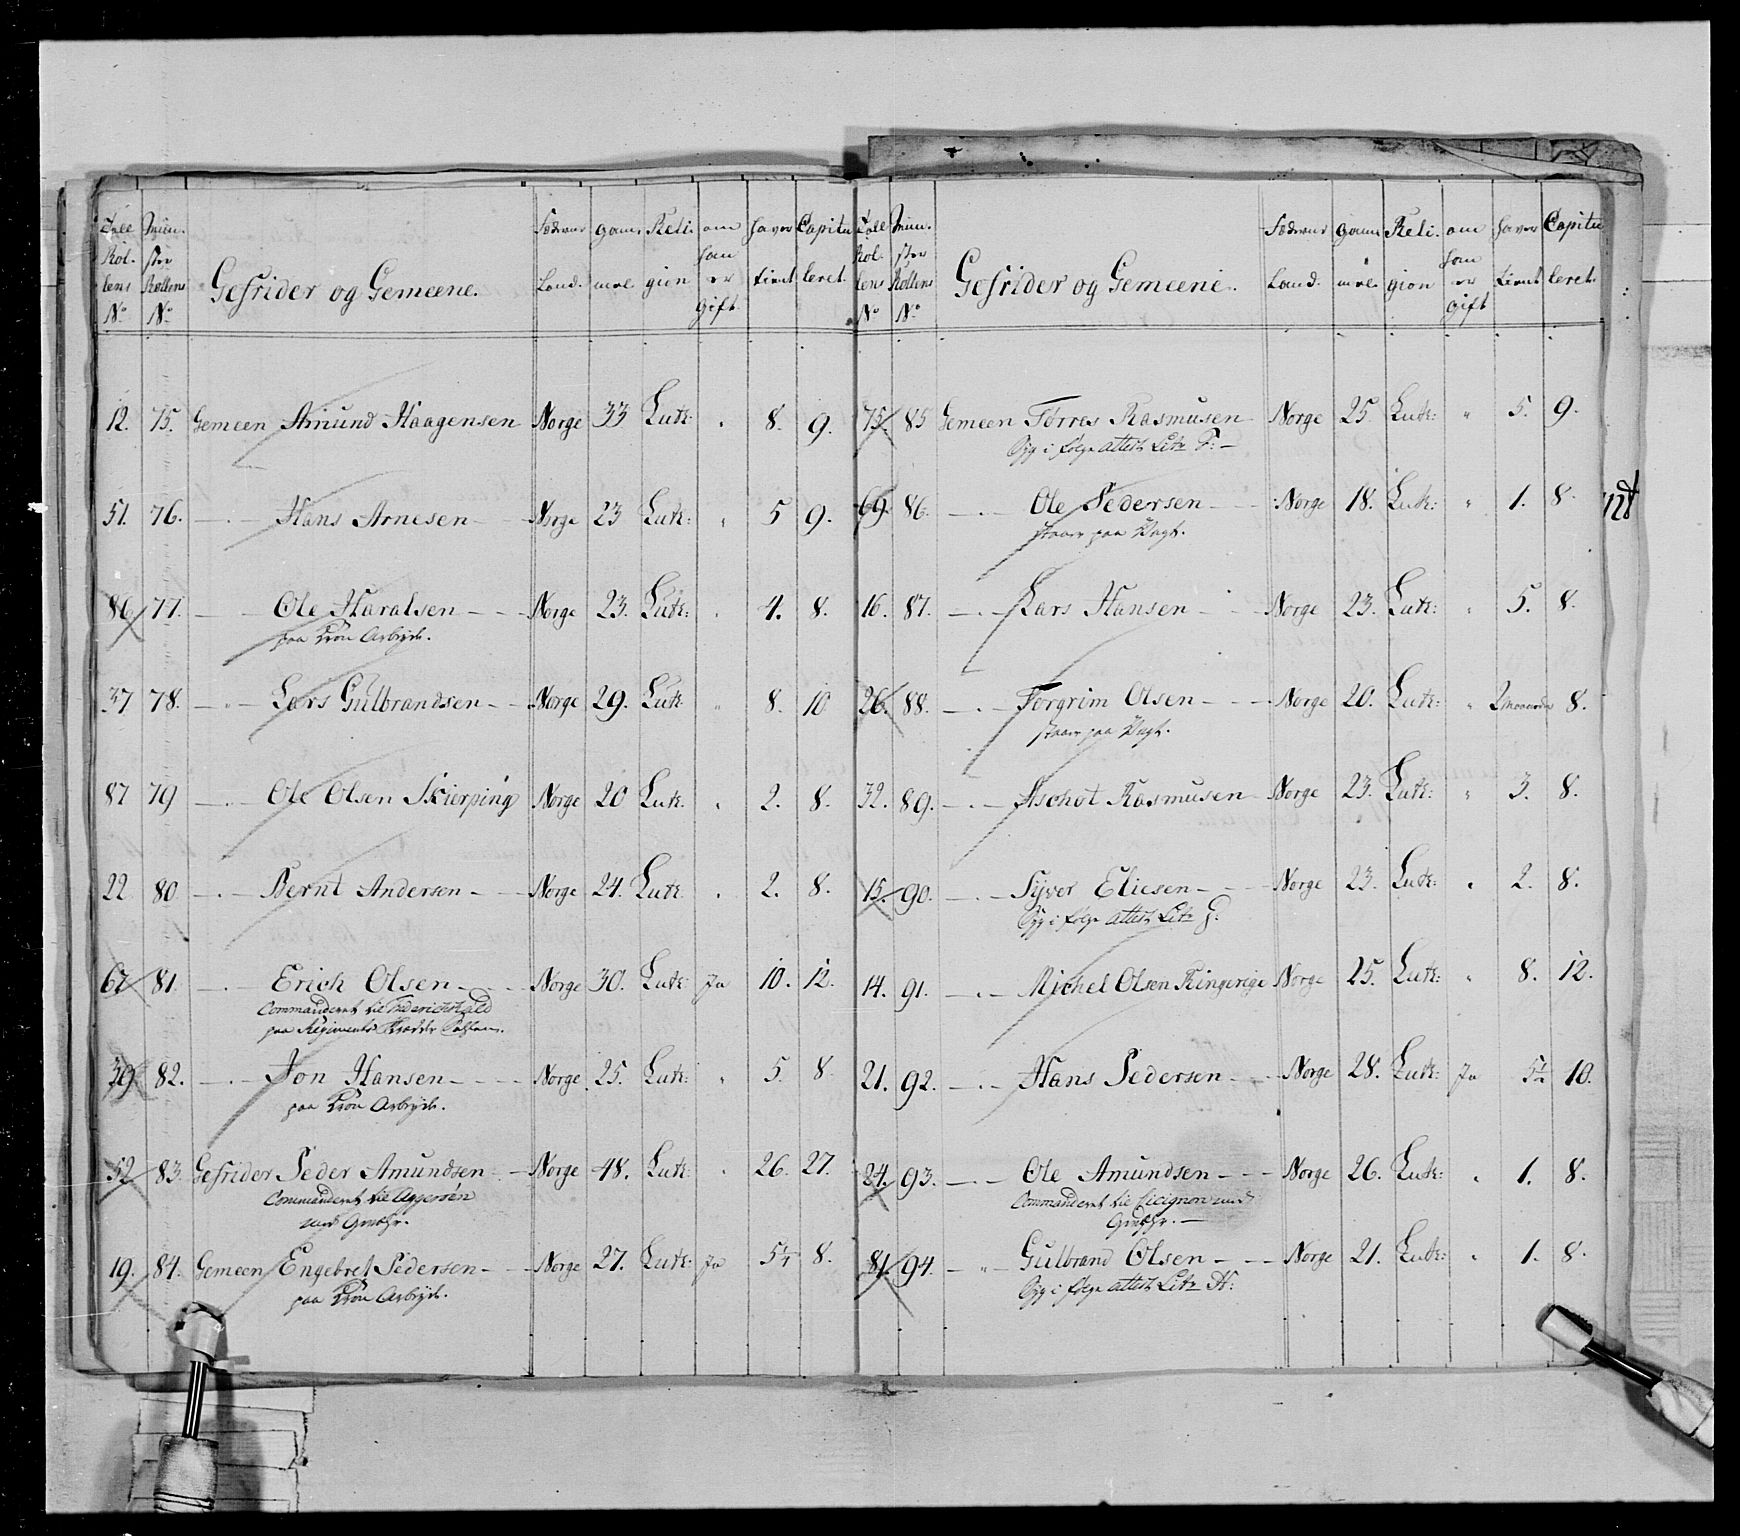 Rol- Mun- Føderne gam- Reli- om haver Capitu
lens ster Gefrider og Gemeene. Land. mel gion han er tient leret.
N° Rollens N° gift
12. 75. Gemeen Amund Haagensen Norge 33 Luth: " 8. 9.
51. 76. — " — Hans Arnesen — Norge 23 Luth: " 5 9.
86 77. — Ole Haralsen — — — Norge 23. Luth: " 4. 8.
paa Kron Arbeyde.
37 78. — " — Lars Gulbrandsen — — Norge 29. Luth " 8. 10
87 79 — . — Ole Olsen Skierping Norge 20 Luth. " 2. 8.
22 80 — . — Bernt Andersen — — Norge 24. Luth. " 2. 8.
67 81 — . — Erich Olsen — — — Norge 30. Luth: Ja 10. 12.
Commanderet til Friderichshald
paa Regiments
39 82. — . — Jon Hansen — — — Norge 25. Luth: " 5. 8.
paa Kron Arbeyde.
52 83 Gefrider Peder Amundsen — Norge 48. Luth: " 26. 27.
Commanderet til Aggersøen
19. 84. Gemeen Engebret Pedersen — — Norge 27. Luth: Ja 5¼ 8.
paa Kron Arbeyde.
Rol- Mun- Føderne gam- Reli- om haver Capitu
lens ster Gefrider og Gemeene. Land. mel gion han er tient leret.
N° Rollens N° gift
75. 85 Gemeen Torres Rasmusen Norge 25 Luth: " 5. 9.
Syg i følge attest Litr F: —
69. 86. — . — Ole Pedersen — — Norge 18. Luth: " 1. 8.
staar paa Vagt.
16. 87. — . — Lars Hansen — — Norge 23. Luth: " 5. 8.
26. 88. — . — Torgrim Olsen — — — Norge 20. Luth: " 2 Maaneder 8.
staar paa Vagt.
32. 89. — . — Aschot Rasmusen Norge 23. Luth: " 3. 8.
15. 90. — . — Syver Eliesen — — — Norge 23. Luth: " 2. 8.
Syg i følge attest Litr G:
14. 91. — . — Michel Olsen Ringerige Norge 25. Luth: " 8. 12.
21. 92. — . — Hans Pedersen — — Norge 28. Luth: Ja 5½ 10.
24. 93. — . — Ole Amundsen — — — Norge 26. Luth: " 1. 8.
Commanderet til Cicignon med
81. 94. — " — Gulbrand Olsen — — — Norge 21. Luth: " 1. 8.
Syg i følge attest Litr H: